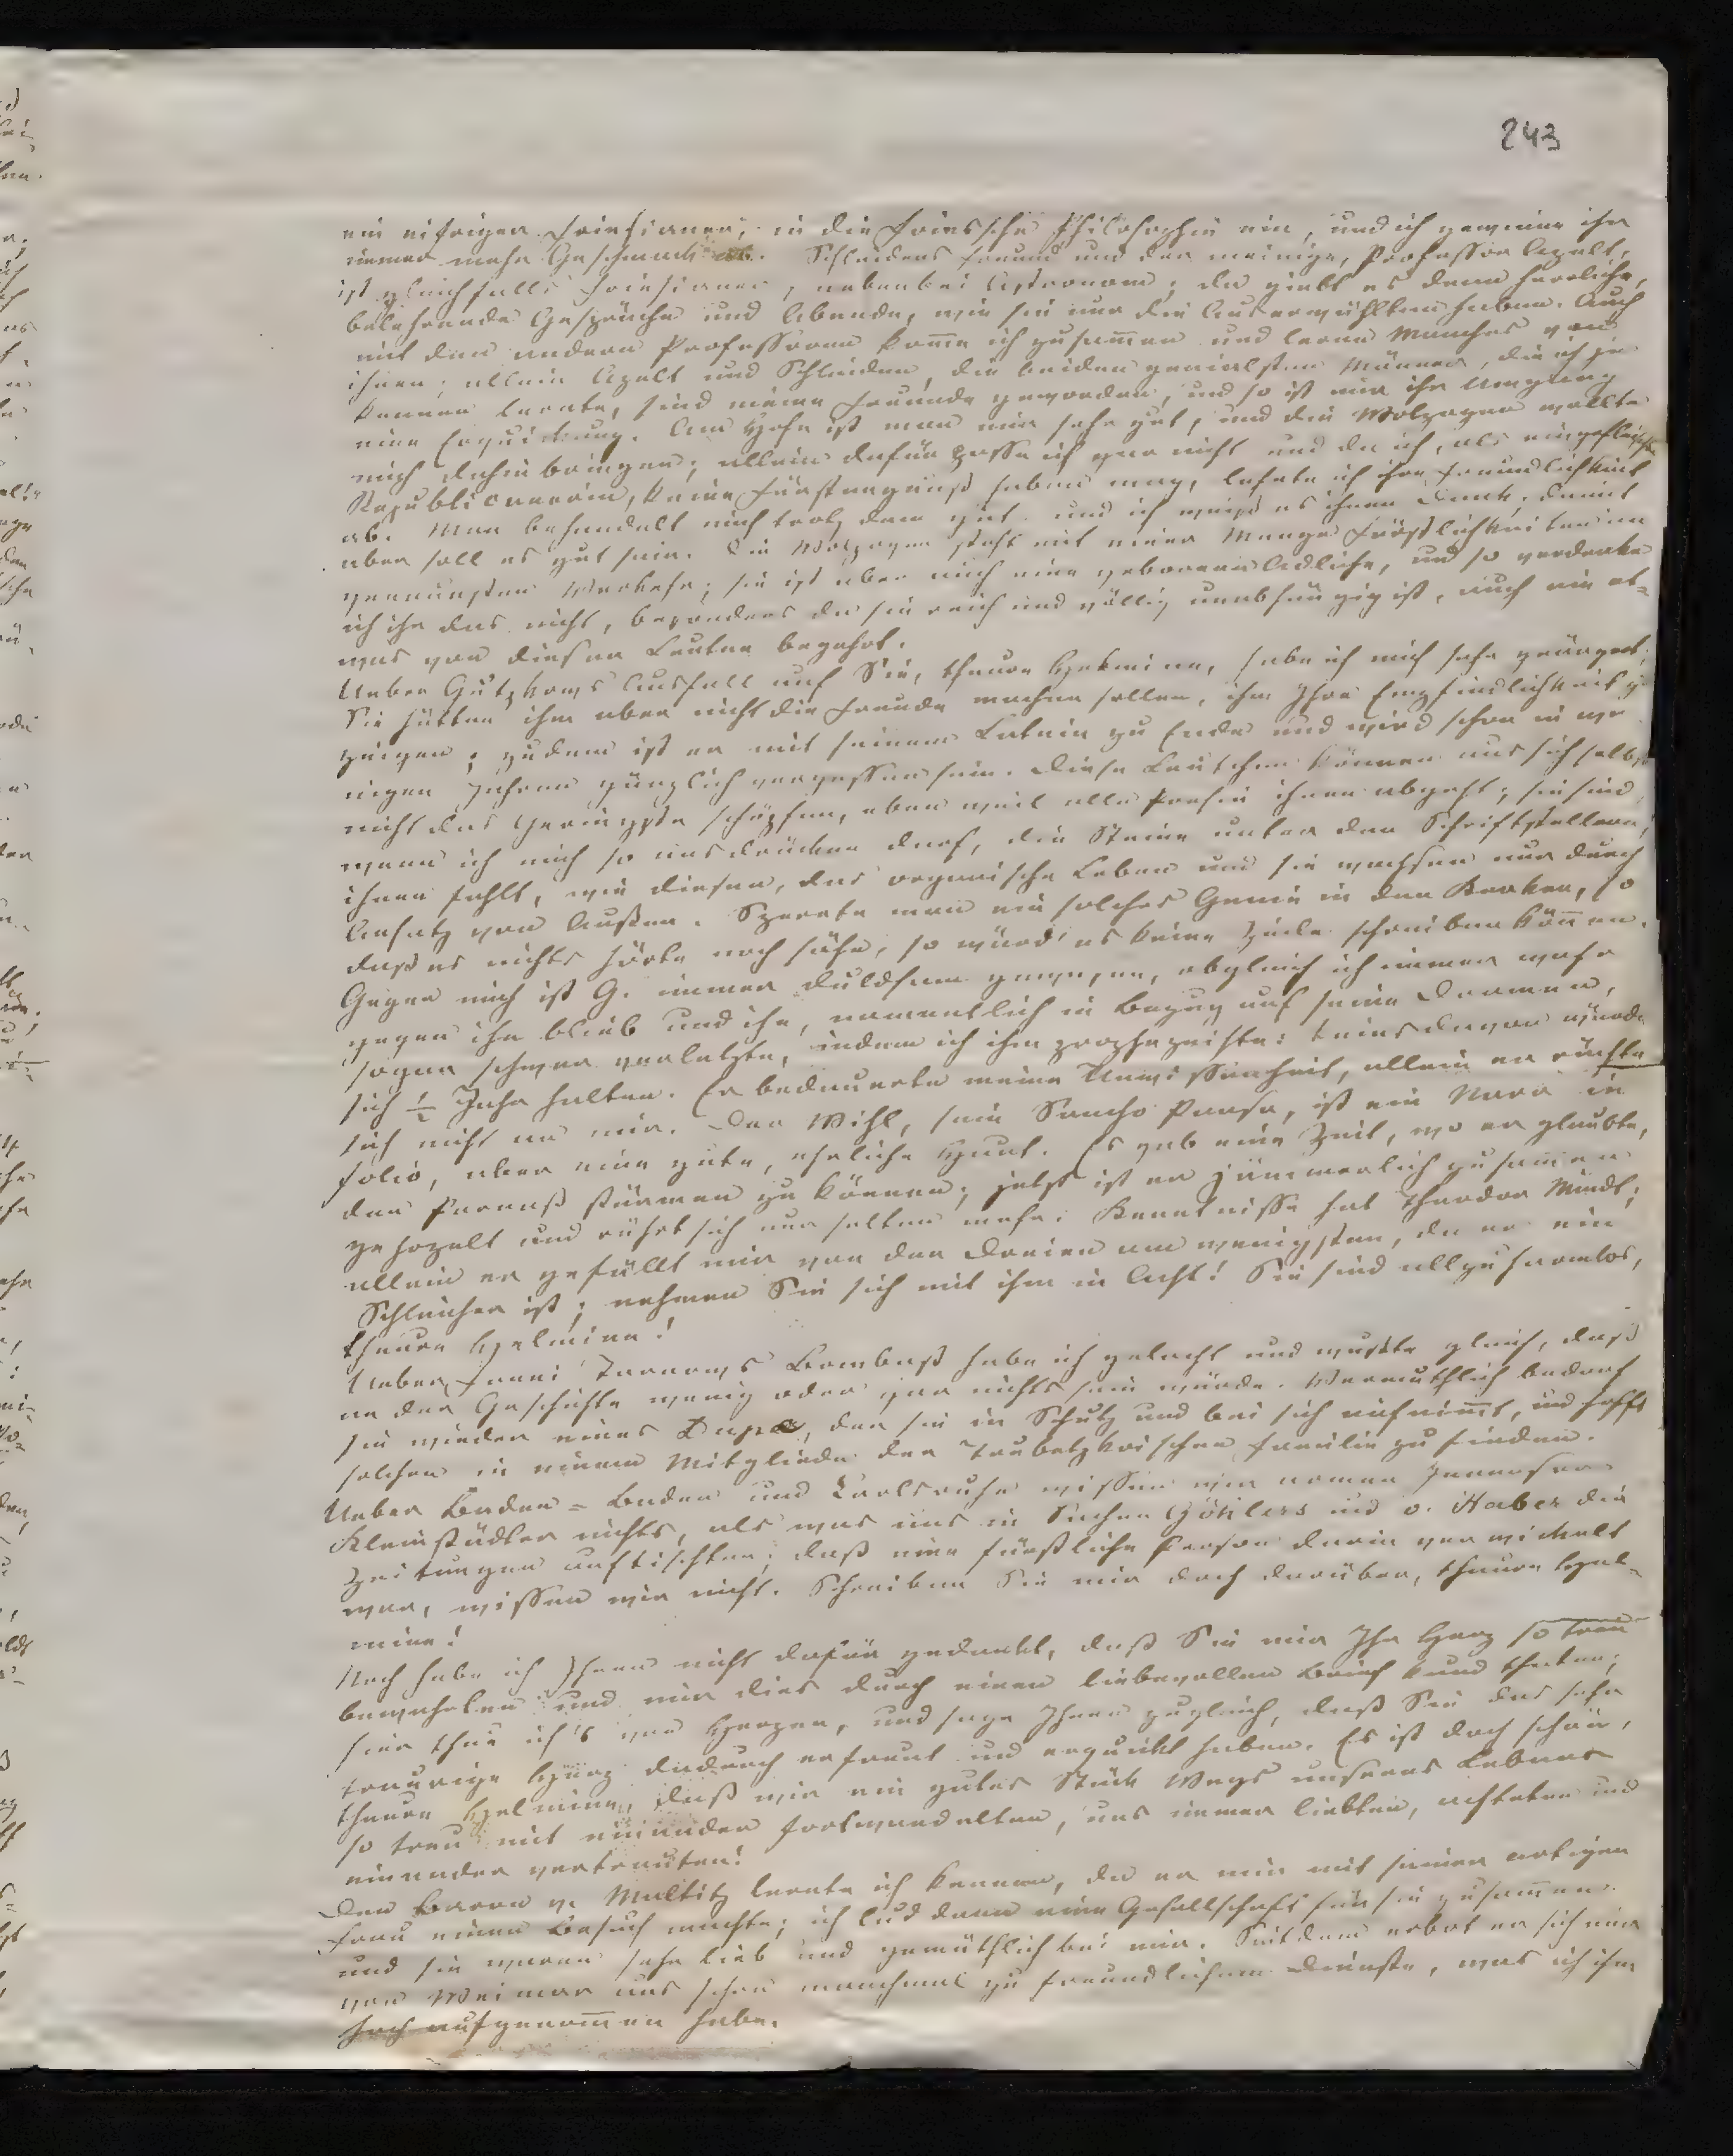 243
ein eifriger Friesianer, in die Fries'sche Philosophie ein, und ich gewinne ihr
immer mehr Geschmack ab. Schleidens Freund und der meinige, Professor Apelt,
ist gleichfalls Friesianer, nebenbei Astronom; da giebt es denn herrliche,
belehrende Gespräche und Abende, wie sie nur die Auserwählten haben. Auch
mit den andern Professoren kom̅e ich zusam̅en und lerne Manches von
ihnen; allein Apelt und Schleiden, die beiden genialsten Männer, die ich je
kennen lernte, sind meine Freunde geworden, und so ist mir ihr Umgang
eine Erquickung. Am Hofe ist man mir sehr gut, und die Wolzogen wollte
mich dahin bringen; allein dafür passe ich gar nicht und da ich, als eingefleischte
Republicanerin, keine Fürstengunst haben mag, lehnte ich ihre Freundlichkeit
ab. Man behandelt mich trotz dem gut und ich weiß es ihnen Dank; damit
aber soll es gut sein. Die Wolzogen steht mit einer Menge Fürstlichkeiten im
genauesten Verkehr; sie ist aber auch eine geborene Adliche, und so verdenke
ich ihr das nicht, besonders da sie reich und völlig unabhängig ist, auch nie et-
was von diesen Leuten begehrt.
Ueber Gutzkows Ausfall auf Sie, theure Helmine, habe ich mich sehr geärgert;
Sie hätten ihm aber nicht die Freude machen sollen, ihm Ihre Empfindlichkeit zu
zeigen; zudem ist er mit seinem Latein zu Ende und wird schon in we
nigen Jahren gänzlich vergessen sein. Diese Leutchen können aus sich selbst
nicht das Geringste schöpfen, eben weil alle Poesie ihnen abgeht; sie sind,
wenn ich mich so ausdrücken darf, die Steine unter den Schriftstellern;
ihnen fehlt, wie diesen, das organische Leben und sie wachsen nur durch
Ansatz von Außen. Sperrte man ein solches Genie in den Kerker, so
daß es nichts hörte noch sähe, so würd' es keine Zeile schreiben kön̅en.
Gegen mich ist G. immer duldsam gewesen, obgleich ich immer wahr
gegen ihn blieb und ihn, namentlich in Bezug auf seine Dramen,
sogar schwer verletzte, indem ich ihm prophezeihte: keins davon würde
sich ½ Jahr halten. Er bedauerte meine Unwissenheit, allein er rächte
sich nicht an mir. Der Wihl, sein Sancho Pansa, ist ein Narr in
folio, aber eine gute, ehrliche Haut. Es gab eine Zeit, wo er glaubte,
den Parnaß stürmen zu können; jetzt ist er jämmerlich zusam̅en
gehozelt und rührt sich nur selten mehr. Kenntnisse hat Theodor Mundt;
allein er gefällt mir von den Dreien am wenigsten, da er ein
Schleicher ist; nehmen Sie sich mit ihm in Acht! Sie sind allzu harmlos,
theure Helmine!
Ueber Fanni Tarnows Bombast habe ich gelacht und wußte gleich, daß
an der Geschichte wenig oder gar nichts sein würde. Vermuthlich bedarf
sie wieder eines Dupe, der sie in Schutz und bei sich aufnim̅t, und hofft
solchen in einem Mitgliede der Trubetzkoischen Familie zu finden.
Ueber Baden-Baden und Carlsruhe wissen wir armen Jenenser
Kleinstädter nichts, als was uns in Sachen Göhlers und v. Haber die
Zeitungen auftischten; daß eine fürstliche Person darin verwickelt
war, wissen wir nicht. Schreiben Sie mir doch darüber, theure Hel-
mine!
Noch habe ich Ihnen nicht dafür gedankt, daß Sie mir Ihr Herz so treu
bewahrten und mir dies durch einen liebevollen Brief kund thaten;
hier thue ich's von Herzen, und sage Ihnen zugleich, daß Sie das sehr
traurige Herz dadurch erfreut und erquickt haben. Es ist doch schön,
theure Helmine, daß wir ein gutes Stück Wegs unseres Lebens
so treu mit einander fortwandelten, uns immer liebten, achteten und
einander vertrauten!
Den Baron v. Maltitz lernte ich kennen, da er mir mit seiner artigen
Frau einen Besuch machte; ich lud dann eine Gesellschaft für sie zusam̅en
und sie waren sehr lieb und gemüthlich bei mir. Seitdem erbot er sich mir
von Weimar aus schon manchmal zu freundlichem Dienste, was ich ihm
hoch aufgenom̅en habe.